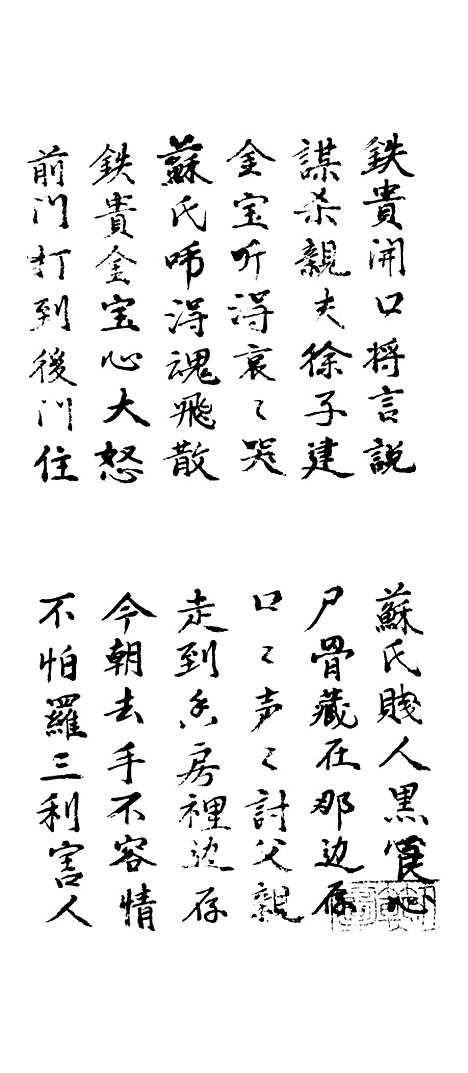 鉄貴開口将言説
蘇氏賤人黒良心
謀杀親夫徐子建
尸骨藏在那边存
金宝听得哀〻哭
口〻声〻討父親
蘇氏唬得魂飛散
走到房裡边存
鉄貴金宝心大怒
今朝去手不容情
前门打到後门住
不怕羅三利害人